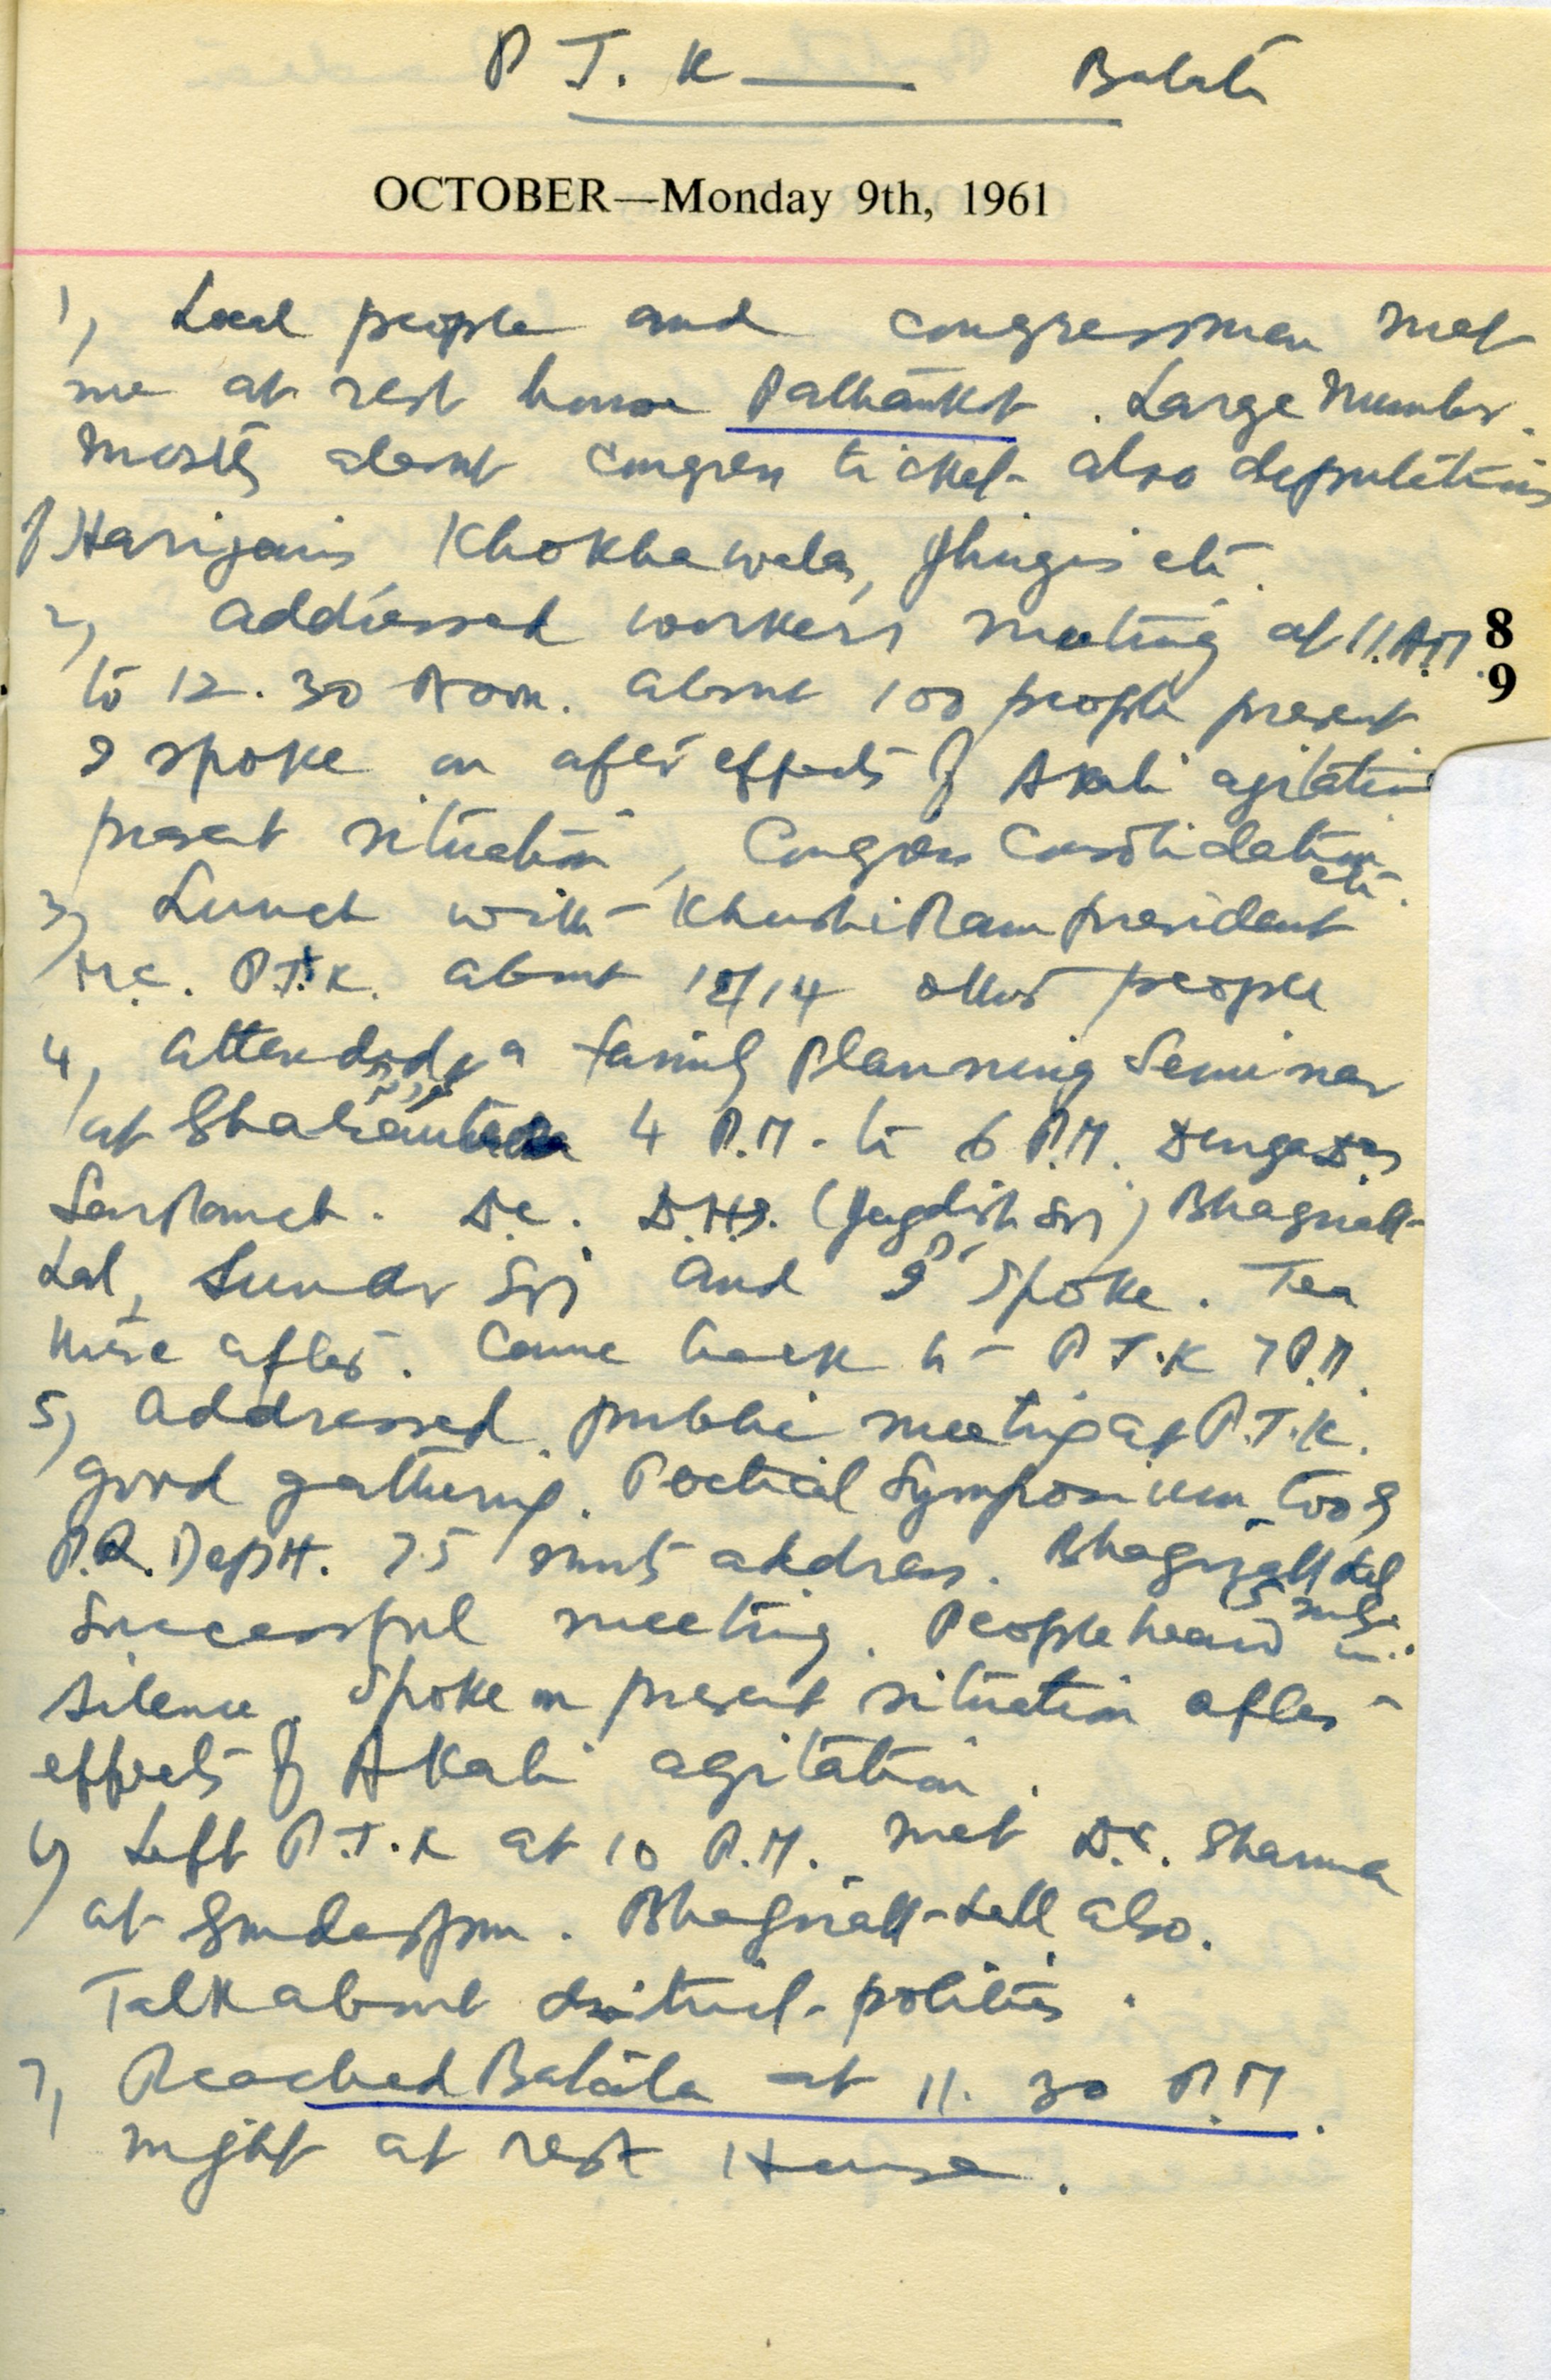 P T. K —— Batala
OCTOBER—Monday 9th, 1961
1) Local people and congressmen met
me at rest house Pathankot. Large number.
mostly about congress ticket also deputations
of Harijans, Khokhawalas, Jhugis etc.
8
9
2) Addressed workers meeting at 11. A.M
to 12.30 Noon. About 100 people present
I spoke on after effects of Akali agitation
present situation, Congress Consolidation
etc.
3) Lunch with Khushi Ram president
M.C. P.T.K. about 12/14 other people
4) Attended a family planning Seminar
at 4 P.M. to 6 P.M.
D.C. D.H.S. (Jagdish Srj) Bhagirath
Lal, Sundar Srj and I spoke. Tea
there after. Came back to P.T.K 7 P.M.
5) Addressed public meeting at P.T.K.
good gathering. Poetical Symposium too of
P.R. Deptt. 75 minuts address. Bhagirath Lal
15 mts.
Successful meeting. People heard in
silence. Spoke on present situation after
effects of Akali agitation.
6) Left P.T.K at 10 P.M. Met D.C. Sharma
at Gurdaspur. Bhagirath Lall also.
Talk about district politics.
7) Reached Batala at 11.30 P.M.
night at rest House.